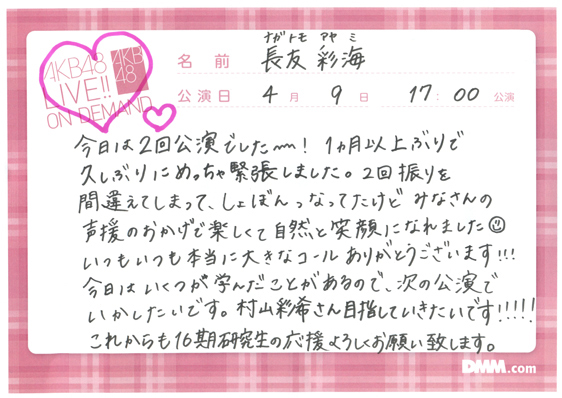 AKB48
LIVE!!
ON DEMAND
AKB
48
ナガトモ アヤミ
名前 長友 彩海
公演日 4月 9日 17:00 公演
今日は2回公演でしたm! 1ヵ月以上ぶりで
久しぶりにめっちゃ緊張しました。2回振りを
間違えてしまって、しょぼんっなってたけど みなさんの
声援のおかげで楽しくて自然と笑顔になれました☺
いつもいつも本当に大きなコール ありがとうございます!!!
今日はいくつか学んだことがあるので、次の公演で
いかしたいです。村山彩希さん目指していきたいです!!!!!
これからも16期研究生の応援よろしくお願い致します。
DMM.com